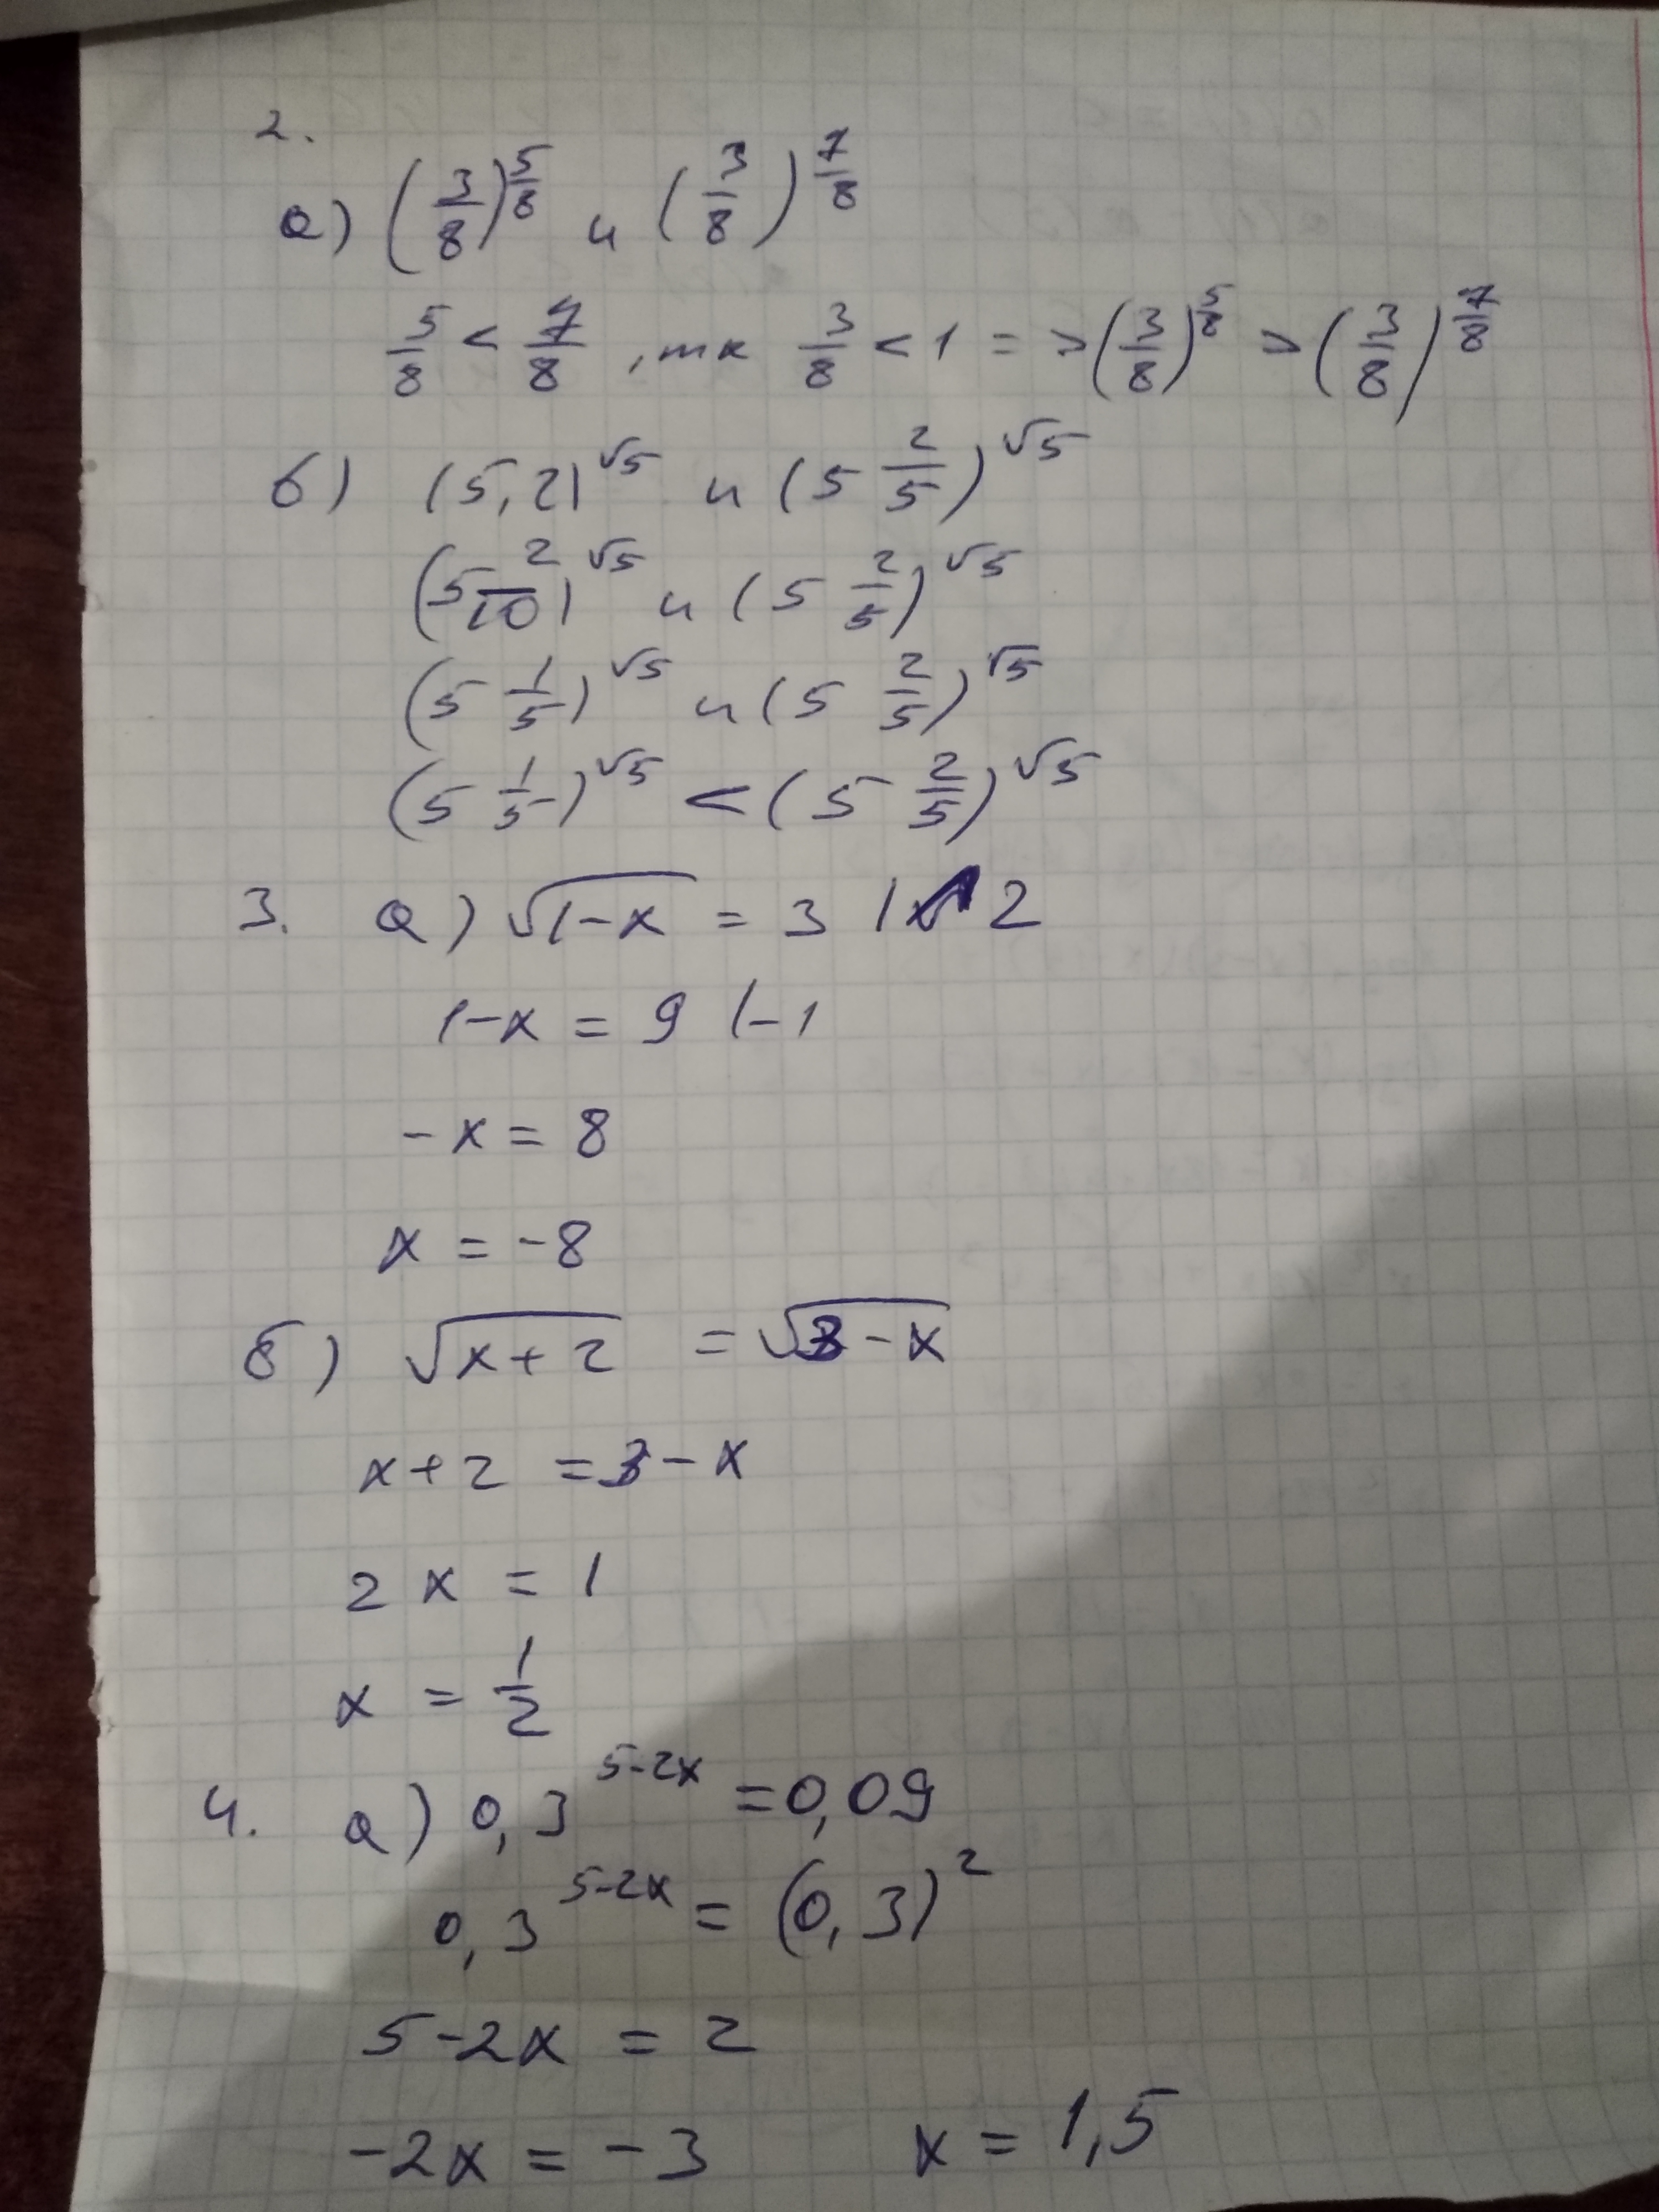 2.
а) (3/8)^(5/8) и (3/8)^(7/8)
5/8 < 7/8 , тк 3/8 < 1 => (3/8)^(5/8) > (3/8)^(7/8)
б) (5,2)^√5 и (5 2/5)^√5
(5 2/10)^√5 и (5 2/5)^√5
(5 1/5)^√5 и (5 2/5)^√5
(5 1/5)^√5 < (5 2/5)^√5
3. а) √(1-x) = 3 | ^2
1-x = 9 |-1
-x = 8
x = -8
б) √(x+2) = √(3-x)
x+2 = 3-x
2x = 1
x = 1/2
4. а) 0,3^(5-2x) = 0,09
0,3^(5-2x) = (0,3)^2
5-2x = 2
-2x = -3 x = 1,5